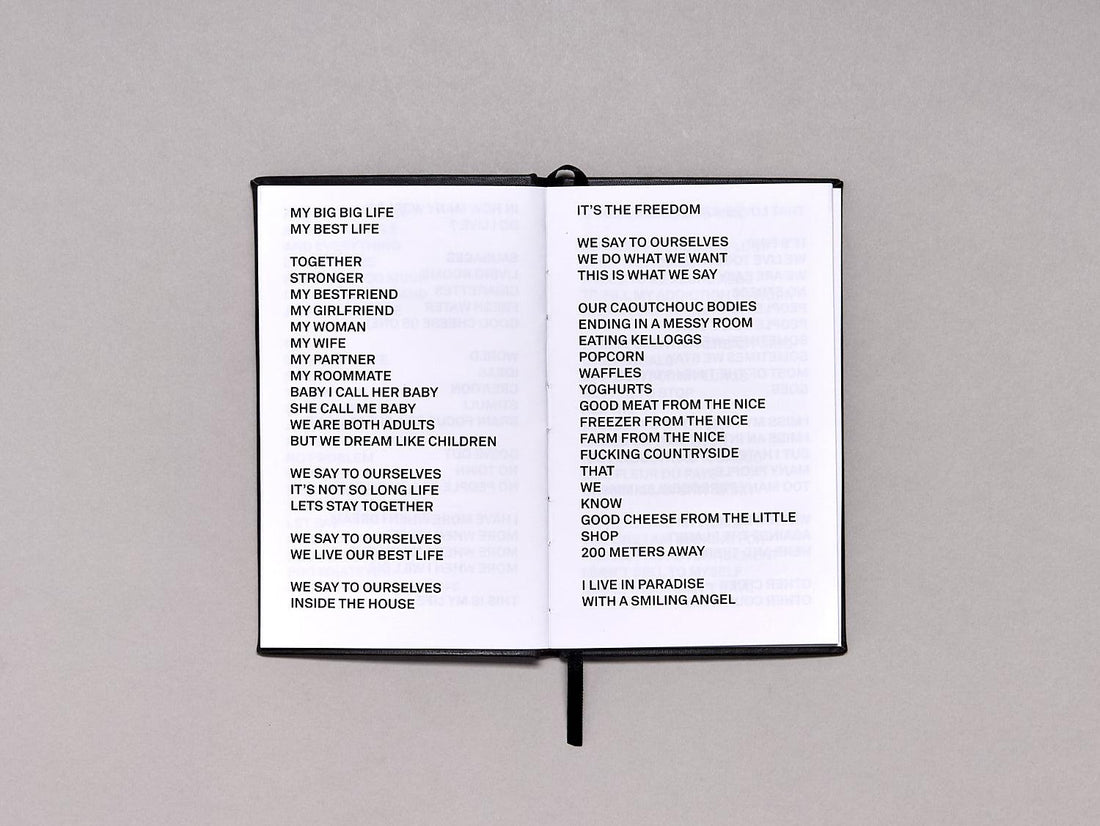 MY BIG BIG LIFE
MY BEST LIFE
TOGETHER
STRONGER
MY BESTFRIEND
MY GIRLFRIEND
MY WOMAN
MY WIFE
MY PARTNER
MY ROOMMATE
BABY I CALL HER BABY
SHE CALL ME BABY
WE ARE BOTH ADULTS
BUT WE DREAM LIKE CHILDREN
WE SAY TO OURSELVES
IT'S NOT SO LONG LIFE
LETS STAY TOGETHER
WE SAY TO OURSELVES
WE LIVE OUR BEST LIFE
WE SAY TO OURSELVES
INSIDE THE HOUSE
IT'S THE FREEDOM
WE SAY TO OURSELVES
WE DO WHAT WE WANT
THIS IS WHAT WE SAY
OUR CAOUTCHOUC BODIES
ENDING IN A MESSY ROOM
EATING KELLOGGS
POPCORN
WAFFLES
YOGHURTS
GOOD MEAT FROM THE NICE
FREEZER FROM THE NICE
FARM FROM THE NICE
FUCKING COUNTRYSIDE
THAT
WE
KNOW
GOOD CHEESE FROM THE LITTLE
SHOP
200 METERS AWAY
I LIVE IN PARADISE
WITH A SMILING ANGEL